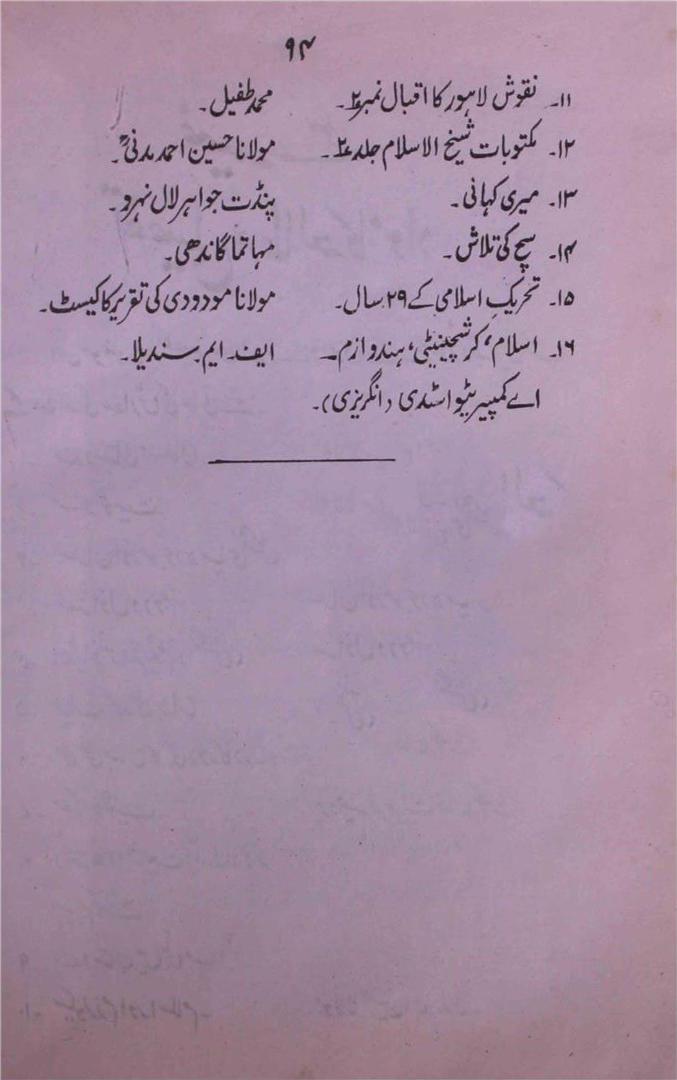 ۹۴
۱۱۔ نقوش لاہور کا اقبال نمبر ۲۔ محمد طفیل۔
۱۲۔ مکتوبات شیخ الاسلام جلد ۲۔ مولانا حسین احمد مدنیؒ۔
۱۳۔ میری کہانی۔ پنڈت جواہر لال نہرو۔
۱۴۔ سچ کی تلاش۔ مہاتما گاندھی۔
۱۵۔ تحریکِ اسلامی کے ۲۹ سال۔ مولانا مودودی کی تقریر کا کیسٹ۔
۱۶۔ اسلام، کرشچینیٹی، ہندوازم۔ ایف۔ ایم سندیلا۔
اے کمپیریٹیو اسٹڈی (انگریزی)۔